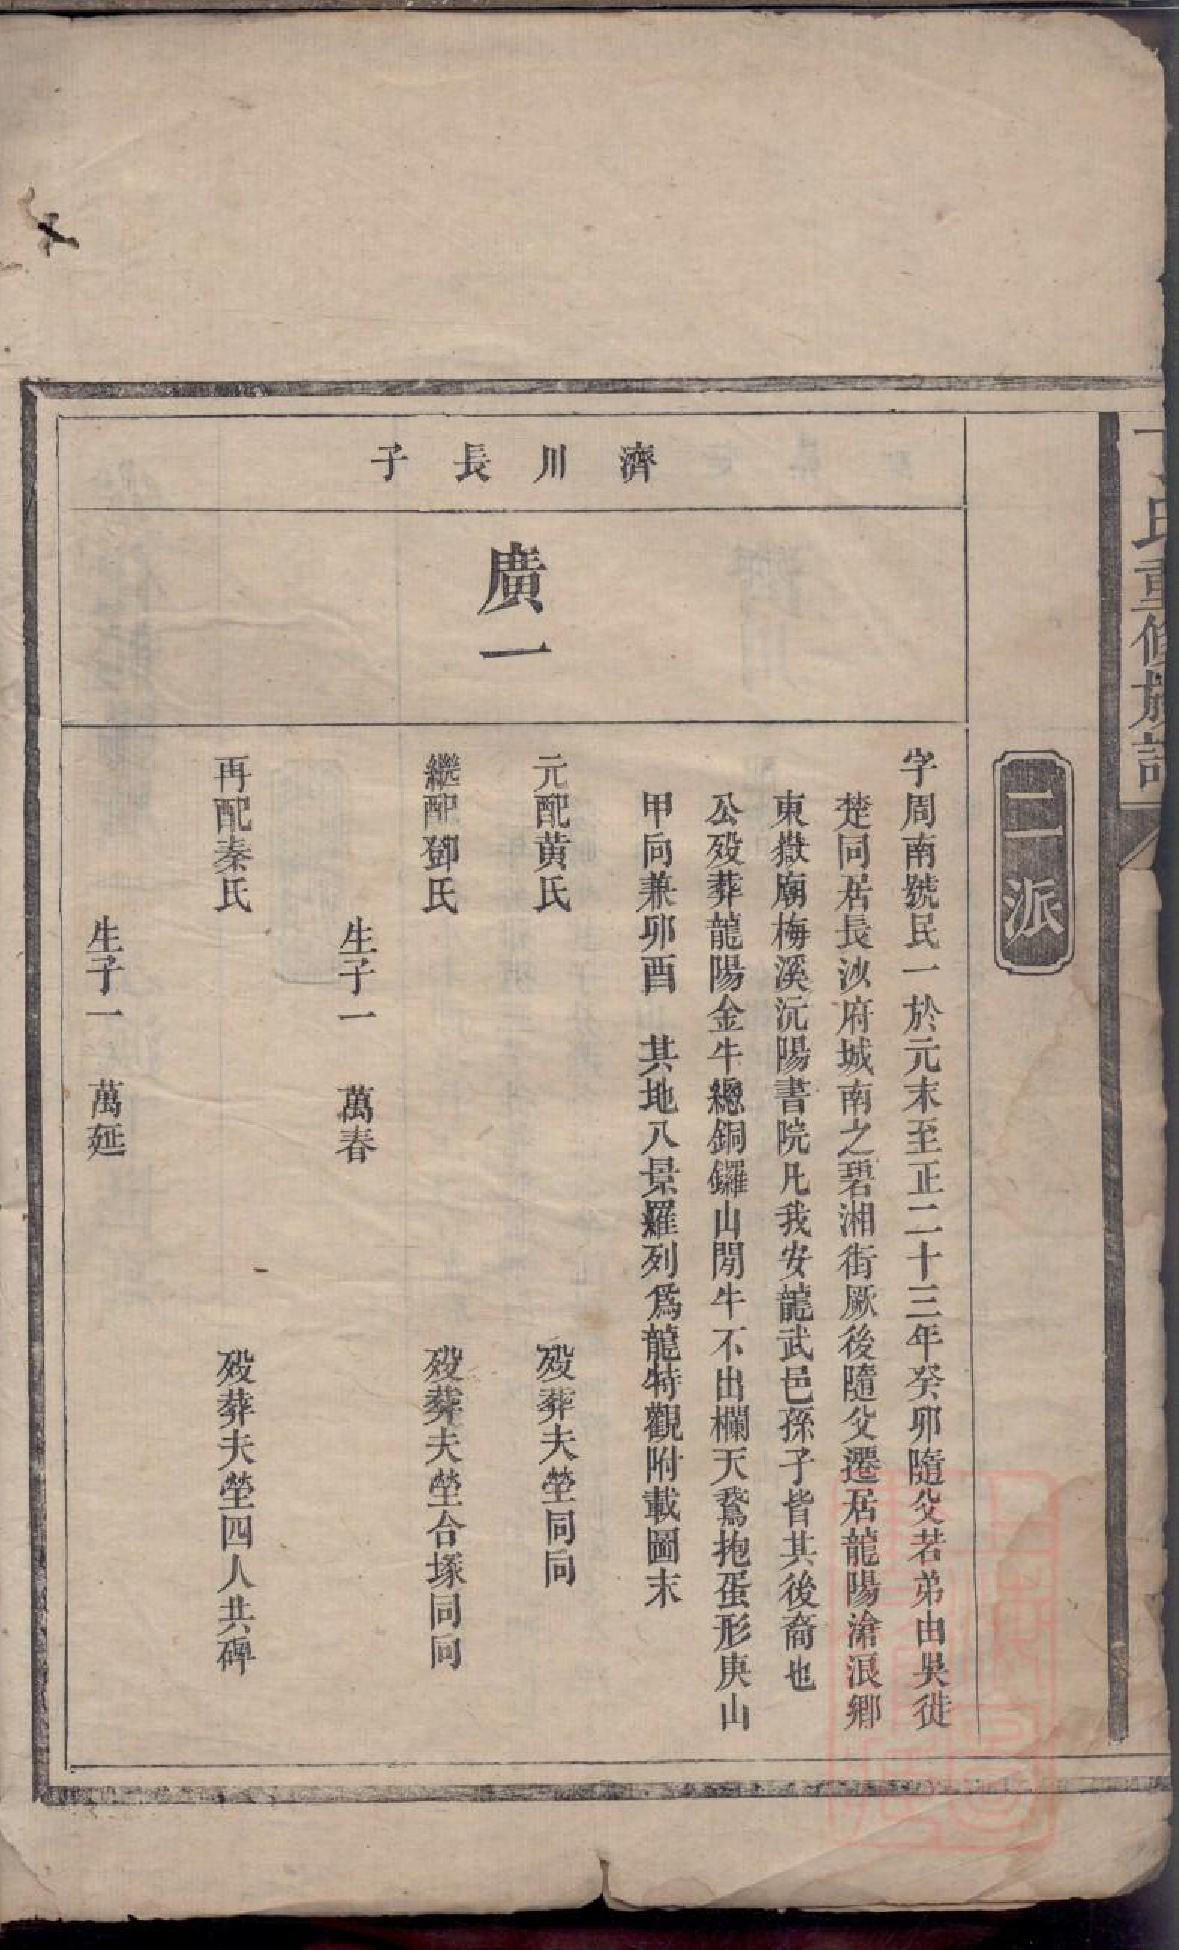 氏重修族譜
二派
濟川長子
廣一
字周南號民一於元末至正二十三年癸卯隨父若弟由吳徙
楚同居長沙府城南之碧湘街厥後隨父遷居龍陽滄浪鄉
東嶽廟梅溪沅陽書院凡我安龍武邑孫子皆其後裔也
公歿葬龍陽金牛總銅鑼山閒牛不出欄天鵞抱蛋形庚山
甲向兼卯酉 其地八景羅列爲龍特觀附載圖末
元配黄氏 歿葬夫塋同向
繼配鄧氏 歿葬夫塋合塚同向
生子一 萬春
再配秦氏 歿葬夫塋四人共碑
生子一 萬延